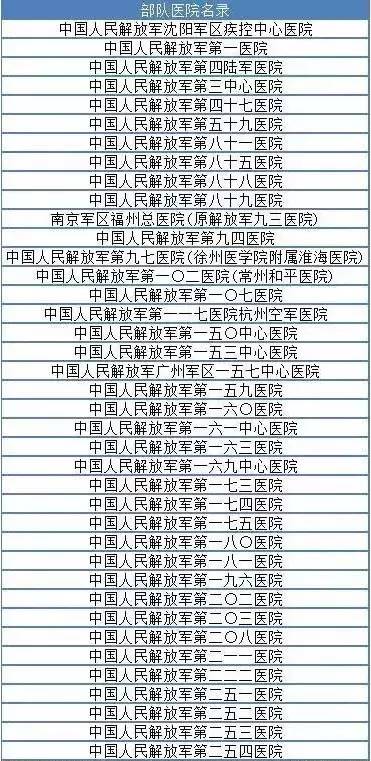 部队医院名录
中国人民解放军沈阳军区疾控中心医院
中国人民解放军第一医院
中国人民解放军第四陆军医院
中国人民解放军第三中心医院
中国人民解放军第四十七医院
中国人民解放军第五十九医院
中国人民解放军第八十一医院
中国人民解放军第八十五医院
中国人民解放军第八十八医院
中国人民解放军第八十九医院
南京军区福州总医院(原解放军九三医院)
中国人民解放军第九四医院
中国人民解放军第九七医院(徐州医学院附属淮海医院)
中国人民解放军第一〇二医院(常州和平医院)
中国人民解放军第一〇七医院
中国人民解放军第一一七医院杭州空军医院
中国人民解放军第一五〇中心医院
中国人民解放军第一五三中心医院
中国人民解放军广州军区一五七中心医院
中国人民解放军第一五九医院
中国人民解放军第一六〇医院
中国人民解放军第一六一中心医院
中国人民解放军第一六三医院
中国人民解放军第一六九中心医院
中国人民解放军第一七三医院
中国人民解放军第一七四医院
中国人民解放军第一七五医院
中国人民解放军第一八〇医院
中国人民解放军第一八一医院
中国人民解放军第一九六医院
中国人民解放军第二〇二医院
中国人民解放军第二〇三医院
中国人民解放军第二〇八医院
中国人民解放军第二一一医院
中国人民解放军第二二二医院
中国人民解放军第二五一医院
中国人民解放军第二五二医院
中国人民解放军第二五三医院
中国人民解放军第二五四医院